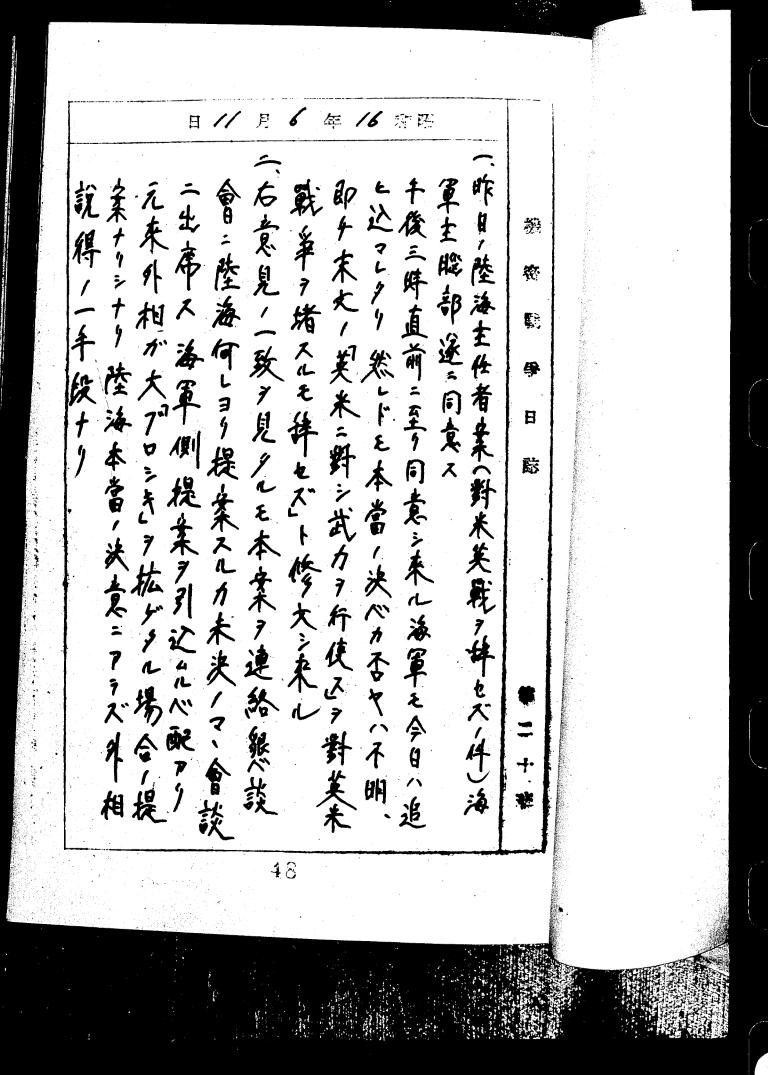 機密戰爭日誌
第二十班
昭和16年6月11日
一、昨日ノ陸海主任者案（對米英戰ヲ辞セズノ件）海
軍主脳部遂ニ同意ス
午後三時直前ニ至リ同意シ来ル海軍モ今日ハ追
ヒ込マレタリ然レドモ本當ノ決心ナルカ否ヤハ不明、
即チ末文ノ「英米ニ對シ武力ヲ行使ス」ヲ對英米
戰爭ヲ賭スルモ辞セズ」ト修文シ来ル
二、右意見ノ一致ヲ見タルモ本案ヲ連絡懇談
會ニ陸海何レヨリ提案スルカ未決ノマヽ會談
ニ出席ス海軍側提案ヲ引込ムル心配アリ
元来外相ガ大「ブロシキ」ヲ拡ゲタル場合ノ提
案ナリシナリ陸海本當ノ決意ニアラズ外相
説得ノ一手段ナリ
48